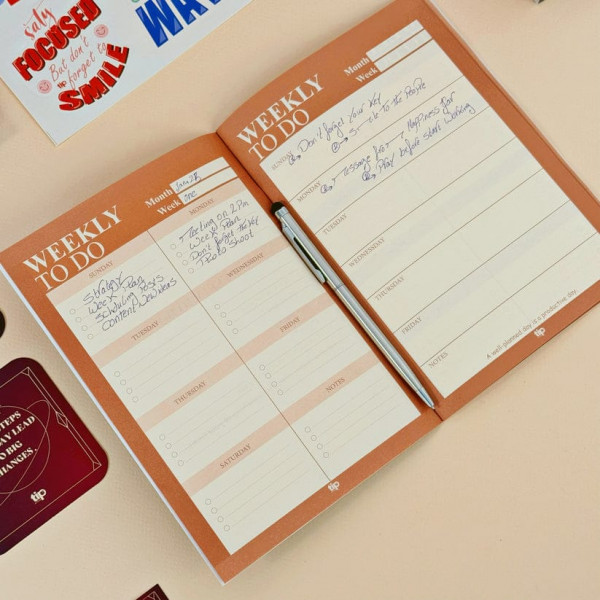 Stay
FOCUSED
But don't
forget to
SMILE
WEEKLY
TO DO
Month
Week one
SUNDAY
Strategy
Week Plan
Content New Ideas
MONDAY
Meeting on 2 Pm
Week Plan
Don't forget the Key
TUESDAY
WEDNESDAY
THURSDAY
FRIDAY
SATURDAY
NOTES
tip
WEEKLY
TO DO
Month
Week
SUNDAY
Don't forget Your Key
to the People
MONDAY
Happiness for
Play before start working
TUESDAY
WEDNESDAY
THURSDAY
FRIDAY
NOTES
A well-planned day is a productive day.
tip
STEPS
LEAD
BIG
tip